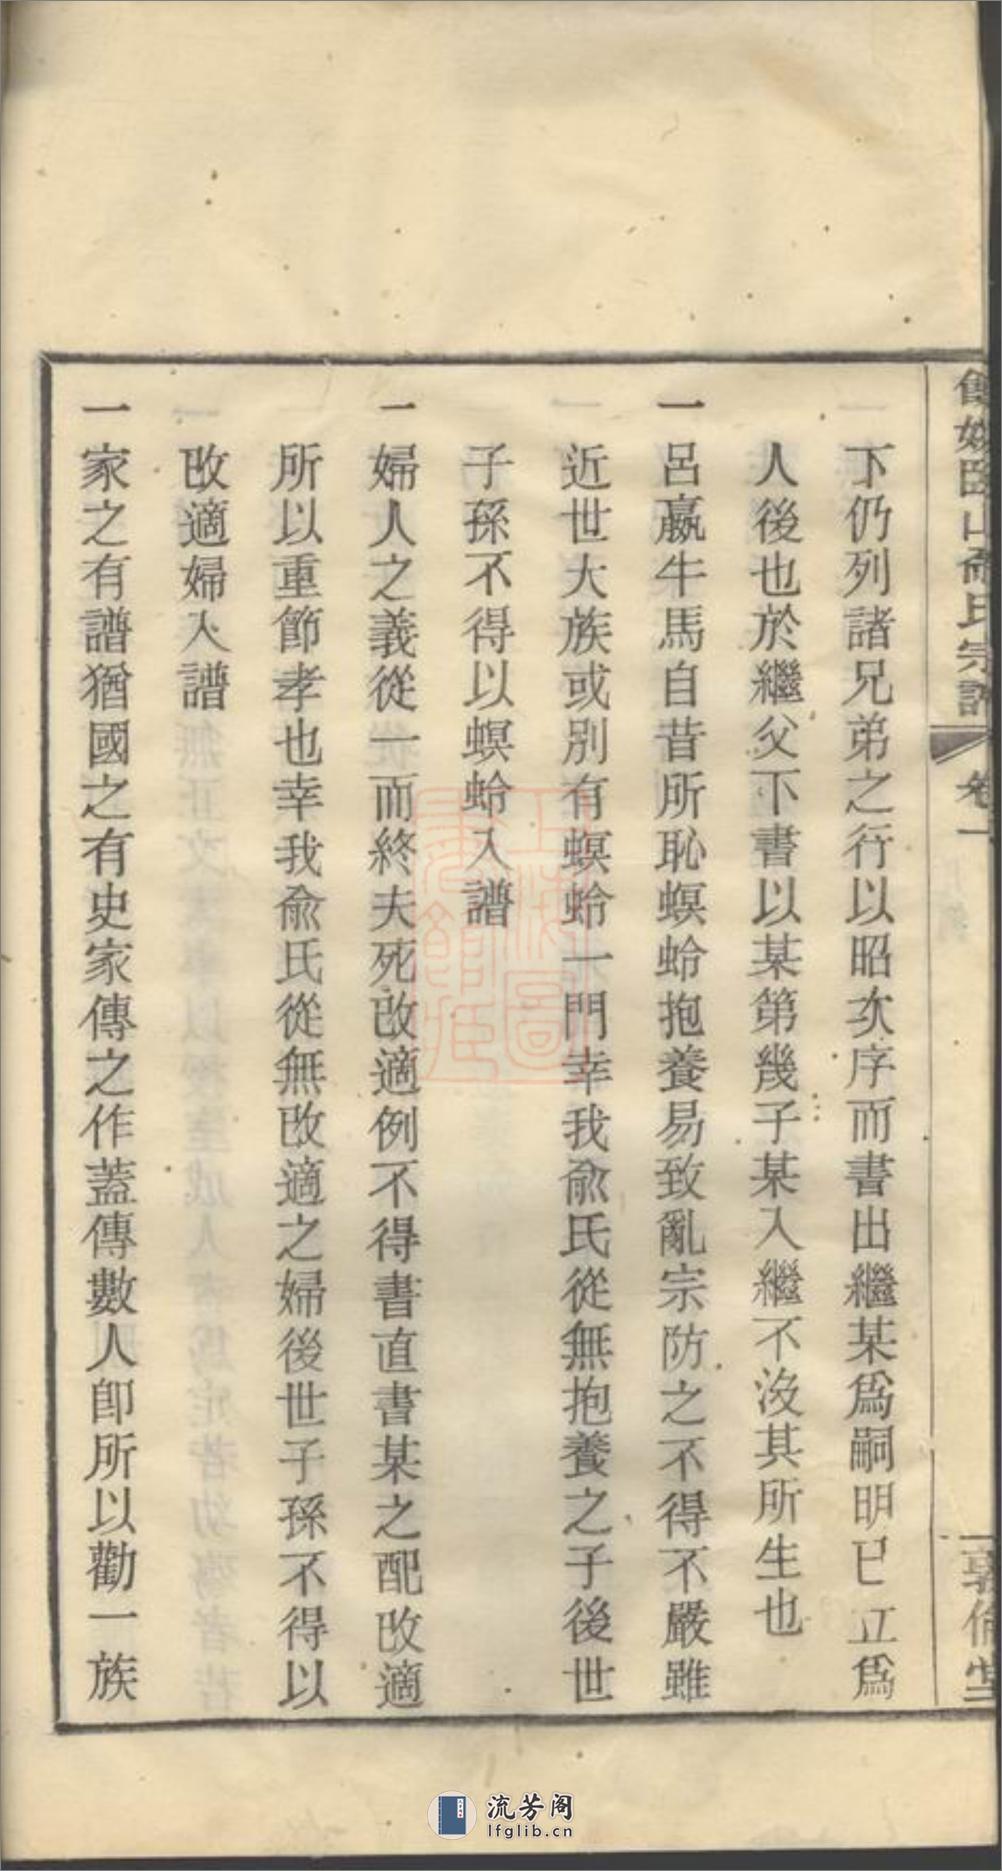 下仍列諸兄弟之行以昭次序而書出繼某爲嗣明已立爲
人後也於繼父下書以某第幾子某入繼不沒其所生也
一呂嬴牛馬自昔所恥螟蛉抱養易致亂宗防之不得不嚴雖
近世大族或別有螟蛉一門幸我俞氏從無抱養之子後世
子孫不得以螟蛉入譜
一婦人之義從一而終夫死改適例不得書直書某之配改適
所以重節孝也幸我俞氏從無改適之婦後世子孫不得以
改適婦入譜
一家之有譜猶國之有史家傳之作蓋傳數人卽所以勸一族
山俞氏宗譜
卷一
敦倫堂
上海圖書館藏
流芳阁
lfglib.cn